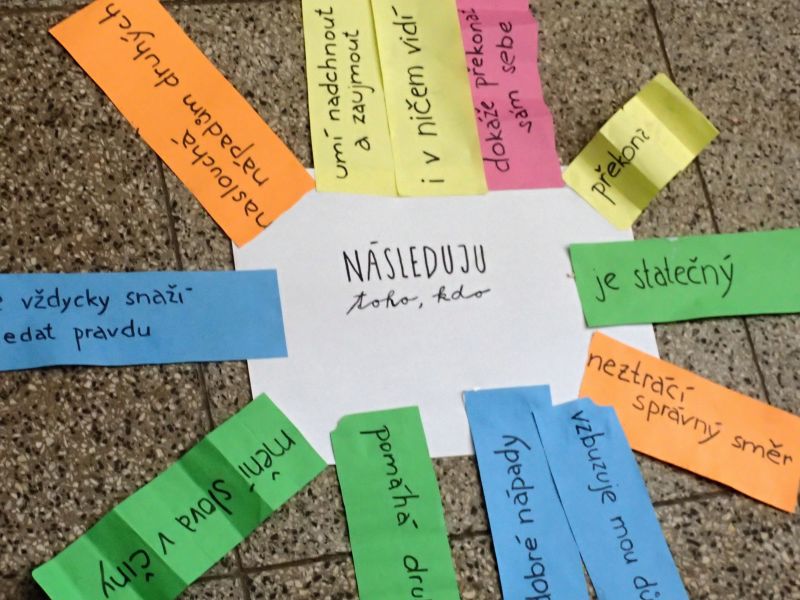 NÁSLEDUJU
toho, kdo
naslouchá
nápadům druhých
umí nadchnout
a zaujmout
i v ničem vidí
dokáže překonat
sám sebe
překoná
je statečný
neztrácí
správný směr
vzbuzuje mou
dobré nápady
pomáhá
mění slova v činy
vždycky snaží
pravdu